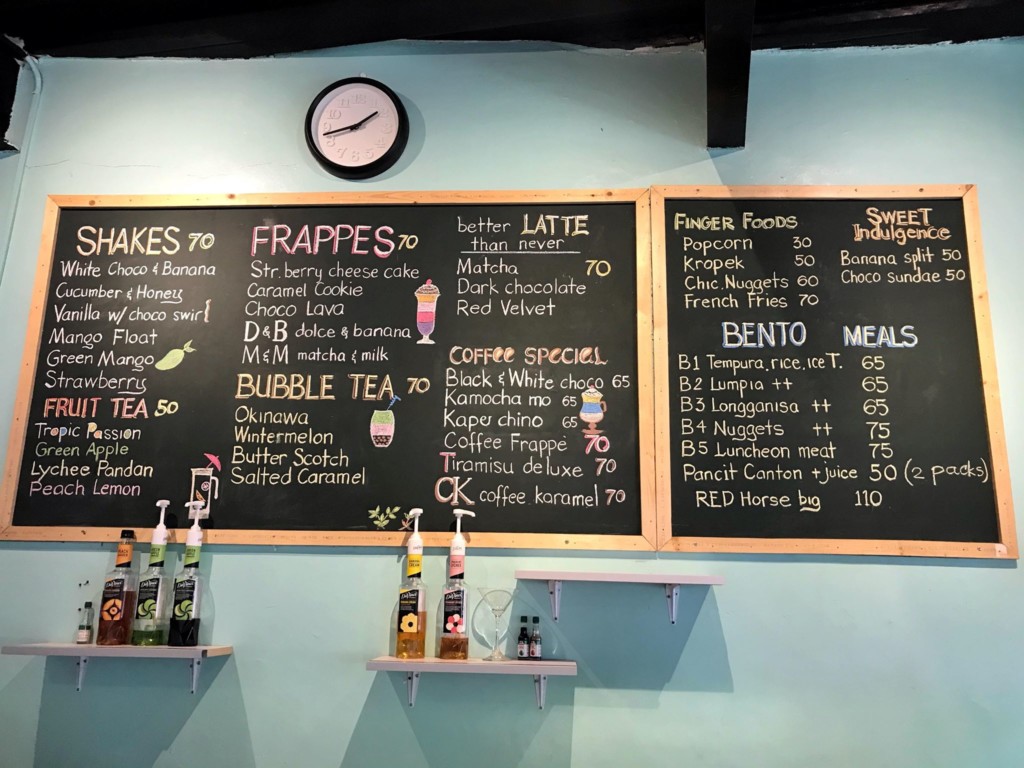 SHAKES 70
White Choco & Banana
Cucumber & Honey
Vanilla w/ choco swirl
Mango Float
Green Mango
Strawberry
FRUIT TEA 50
Tropic Passion
Green Apple
Lychee Pandan
Peach Lemon
FRAPPES 70
Str. berry cheese cake
Caramel Cookie
Choco Lava
D&B dolce & banana
M&M matcha & milk
BUBBLE TEA 70
Okinawa
Wintermelon
Butter Scotch
Salted Caramel
better LATTE
than never
Matcha 70
Dark chocolate
Red Velvet
COFFEE SPECIAL
Black & White choco 65
Kamocha mo 65
Kape chino 65
Coffee Frappe 70
Tiramisu deluxe 70
CK coffee karamel 70
FINGER FOODS
Popcorn 30
Kropek 50
Chic. Nuggets 60
French Fries 70
SWEET
Indulgence
Banana split 50
Choco sundae 50
BENTO MEALS
B1 Tempura, rice, ice T. 65
B2 Lumpia ++ 65
B3 Longganisa ++ 65
B4 Nuggets ++ 75
B5 Luncheon meat 75
Pancit Canton + juice 50 (2 packs)
RED Horse big 110